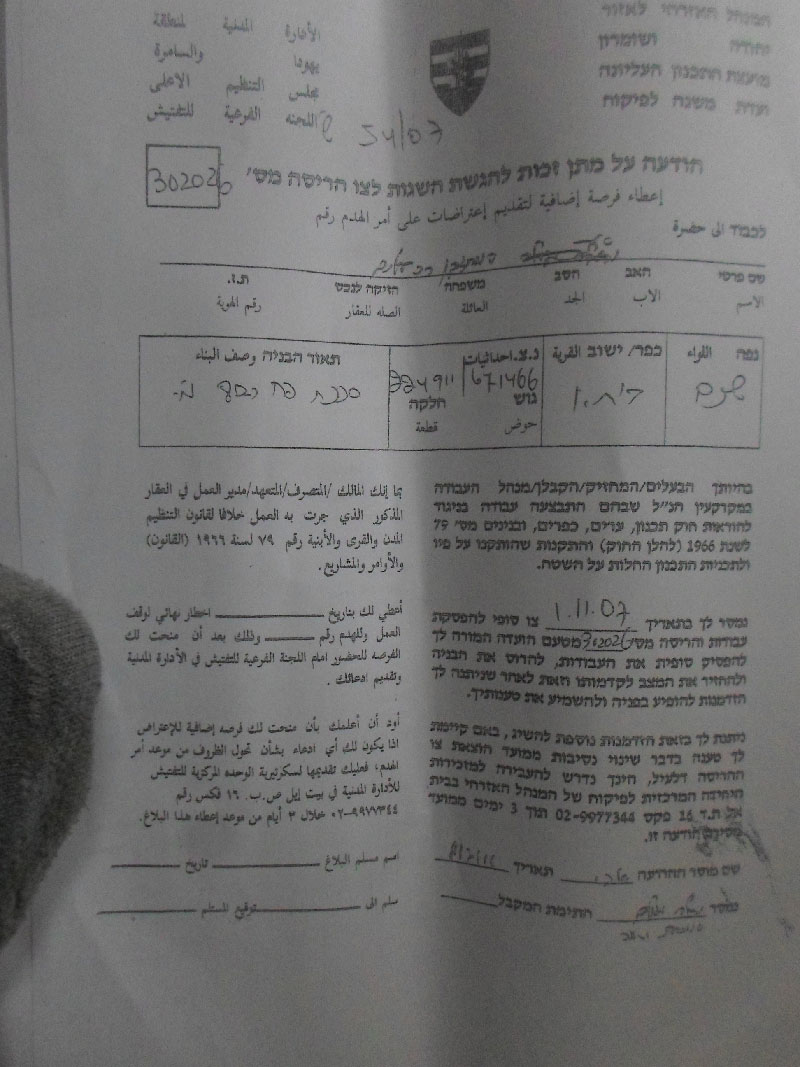 המנהל האזרחי לאזור
יהודה ושומרון
מועצת התכנון העליונה
ועדת משנה לפיקוח
الأدارة المدنية لمنطقة
يهودا والسامرة
مجلس التنظيم الاعلى
اللجنه الفرعية للتفتيش
54/07
הודעה על מתן זכות להגשת השגות לצו הריסה מס'
302026
إعطاء فرصة إضافية لتقديم إعتراضات على أمر الهدم رقم
לכבוד الى حضرة
שם פרטי האב הסב משפחה/ הזיקה לנכס ת.ז.
الاسم الاب الجد العائلة الصله للعقار رقم الهوية
נפה اللواء
כפר/ ישוב القرية
נ.צ. احداثيات
671466
גוש
حوض
חלקה
قطعة
תאור הבניה وصف البناء
בהיותך הבעלים/המחזיק/הקבלן/מנהל העבודה
במקרקעין הנ"ל שבהם התבצעה עבודה בניגוד
להוראות חוק תכנון, ערים, כפרים, ובנינים מס' 79
לשנת 1966 (להלן החוק) והתקנות שהותקנו על פיו
ולתכניות התכנון החלות על השטח.
נמסר לך בתאריך 1.11.07 צו סופי להפסקת
עבודות והריסה מס' 302026 מטעם הועדה המורה לך
להפסיק סופית את העבודות, להרוס את הבניה
ולהחזיר את המצב לקדמותו וזאת לאחר שניתנה לך
הזדמנות להופיע בפניה ולהשמיע את טענותיך.
ניתנת לך בזאת הזדמנות נוספת להשיג, באם קיימת
לך טענה בדבר שינוי נסיבות ממועד הוצאת צו
ההריסה דלעיל, הינך נדרש להעבירה למזכירות
היחידה המרכזית לפיקוח של המנהל האזרחי בבית
אל ת.ד 16 פקס 02-9977344 תוך 3 ימים ממועד
מסירת הודעה זו.
שם מוסר ההודעה תאריך
מוסר חתימת המקבל
بما إنك المالك /المتصرف/المتعهد/مدير العمل في العقار
المذكور الذي جرت به العمل خلافا لقانون التنظيم
المدن والقرى والأبنية رقم ٧٩ لسنة ١٩٦٦ (القانون)
والأوامر والمشاريع.
أعطي لك بتاريخ اخطار نهائي لوقف
العمل وللهدم رقم وذلك بعد أن منحت لك
الفرصه للحضور امام اللجنة الفرعية للتفتيش في الأدارة المدنية
وتقديم ادعائك.
أود أن أعلمك بأن منحت لك فرصه إضافية للإعتراض
اذا يكون لك أي ادعاء بشأن تحول الظروف من موعد أمر
الهدم، فعليك تقديمها لسكرتيرية الوحده المركزية للتفتيش
للأدارة المدنية في بيت إيل ص.ب. ١٦ فكس رقم
٠٢-٩٩٧٧٣٤٤ خلال ٣ أيام من موعد إعطاء هذا البلاغ.
اسم مسلم البلاغ تاريخ
توقيع المستلم